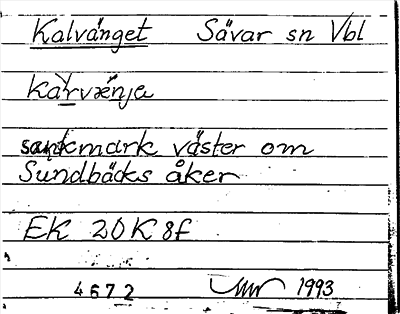 Kalvänget Sävar sn Vbl
kàrvænja
sankmark väster om
Sundbäcks åker
EK 20K 8f
4672 1993